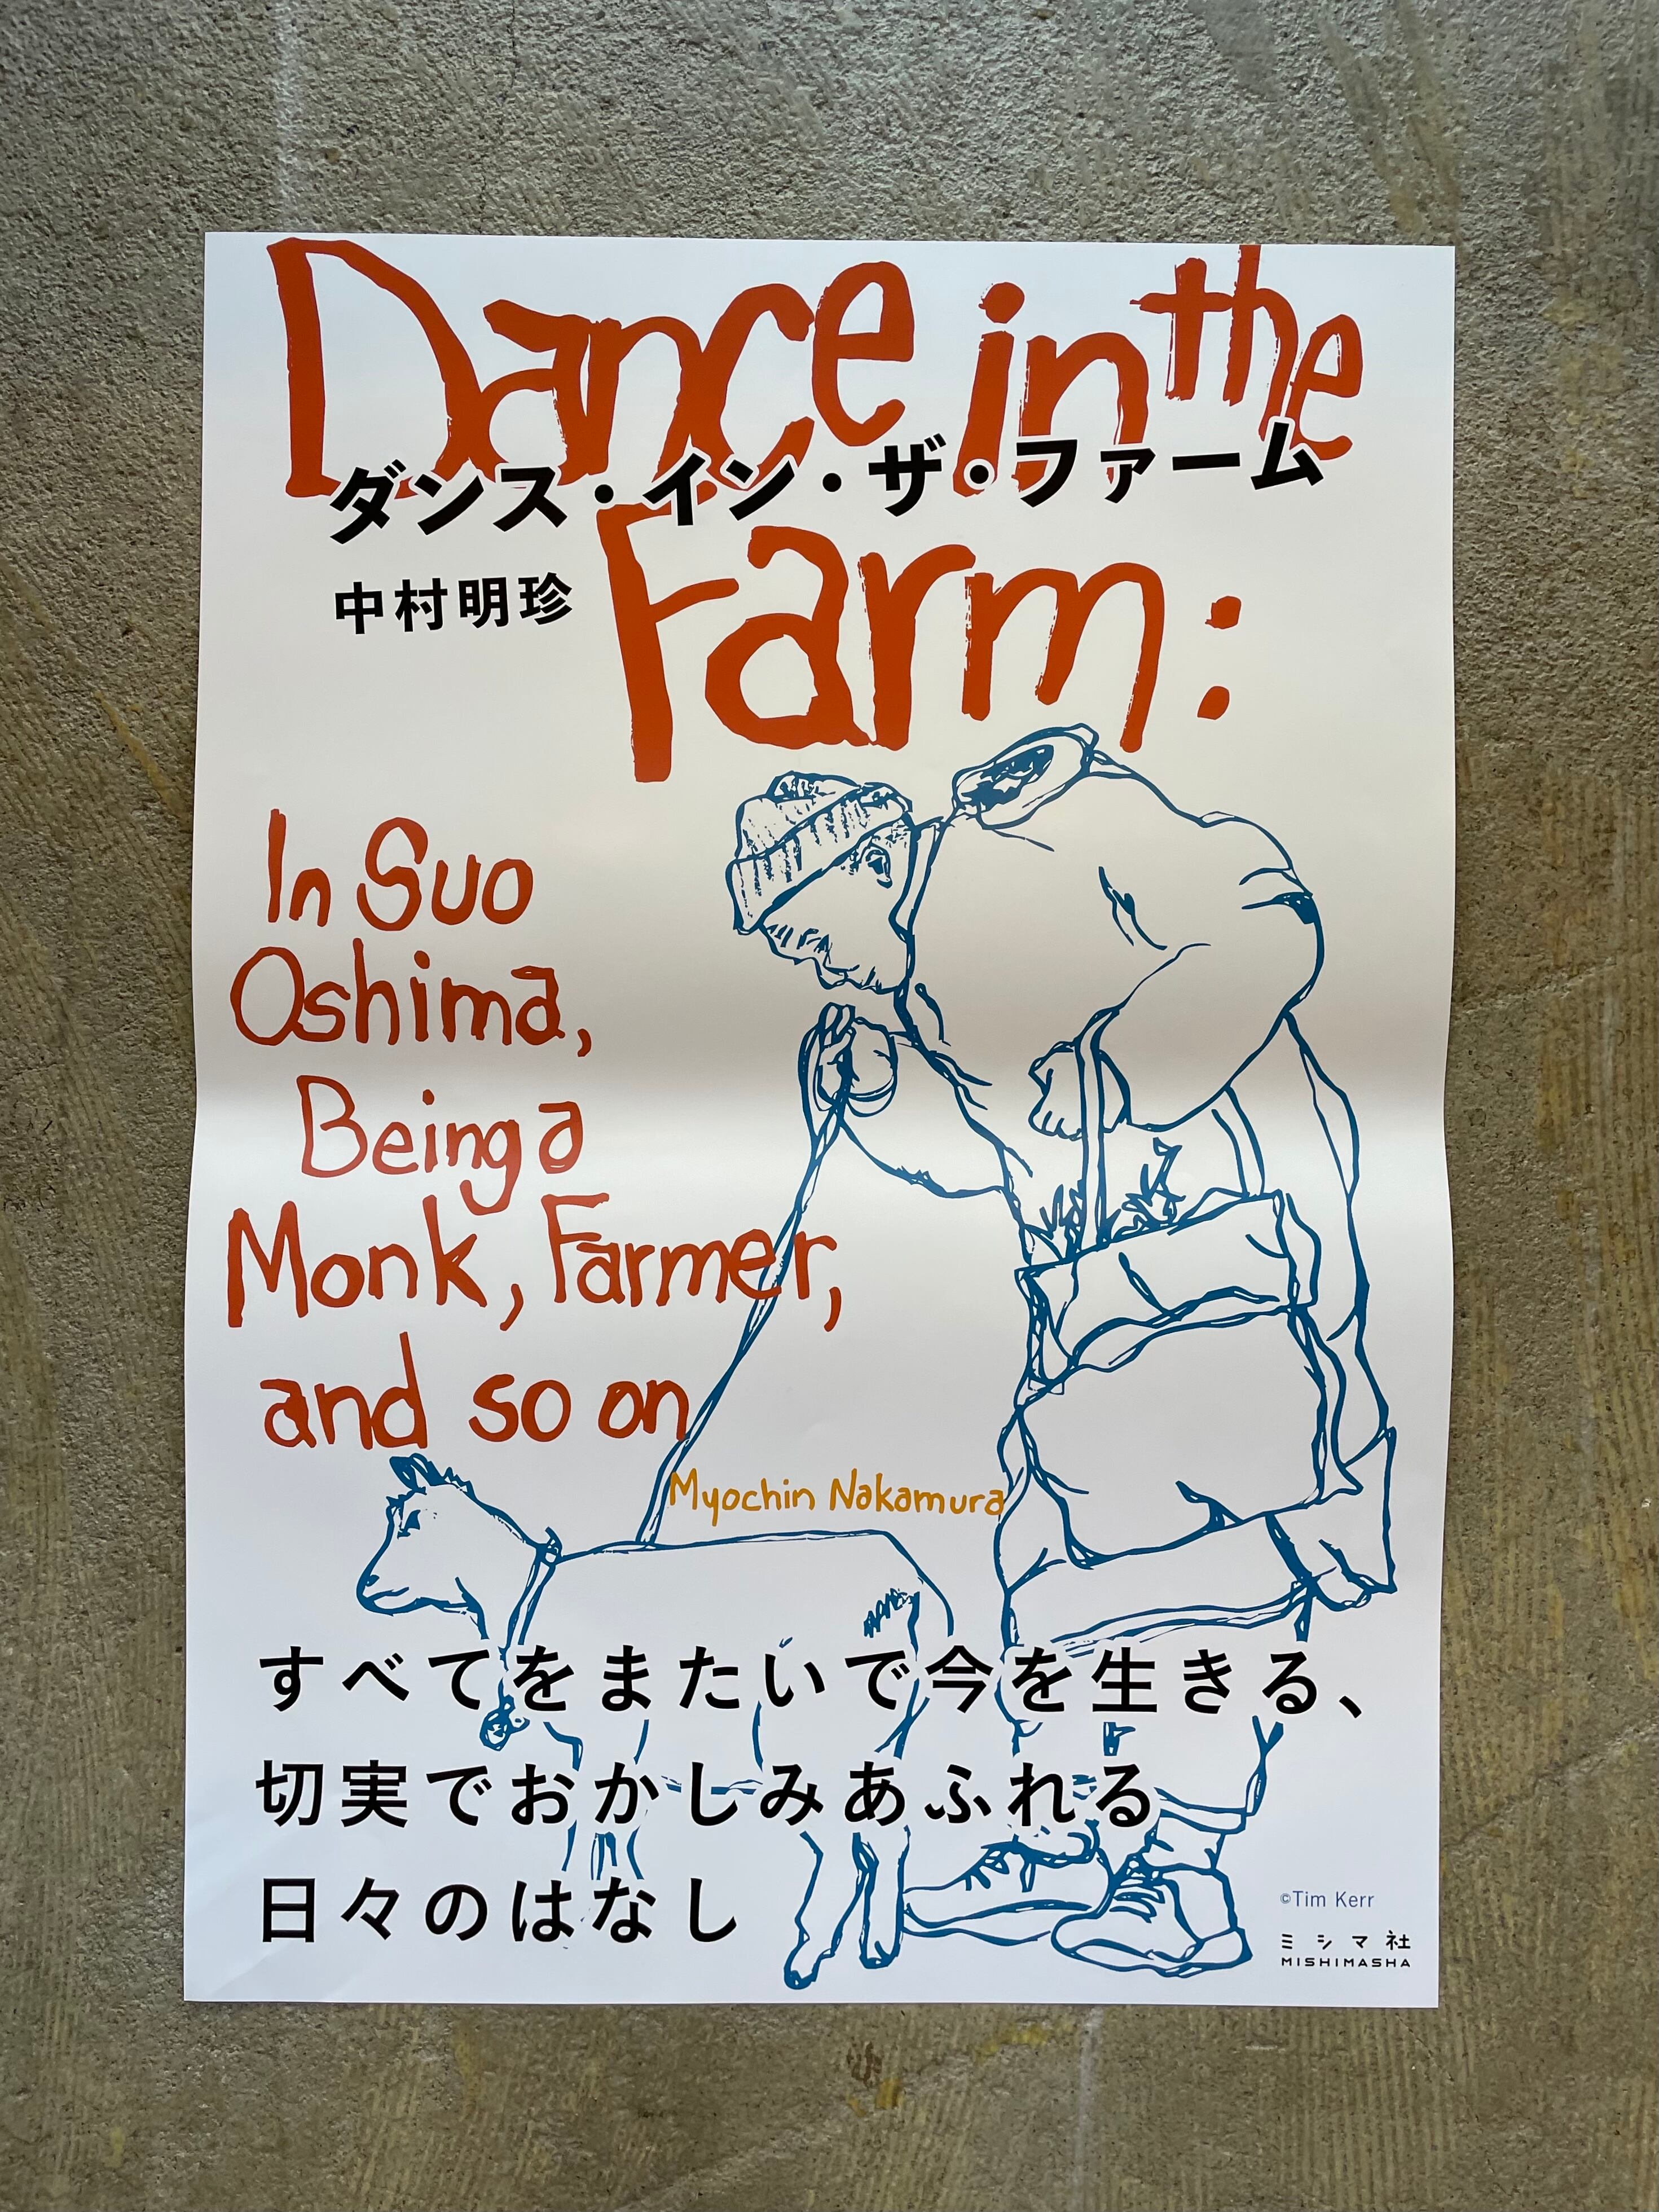 Dance in the
ダンス・イン・ザ・ファーム
中村明珍
Farm:
In Suo
Oshima,
Being a
Monk, Farmer,
and so on
Myochin Nakamura
すべてをまたいで今を生きる、
切実でおかしみあふれる
日々のはなし
©Tim Kerr
ミシマ社
MISHIMASHA